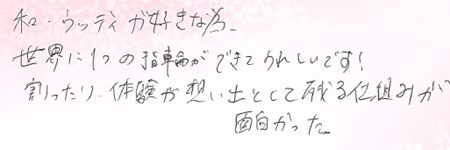 和・ウッディが好きな為、
世界に1つの指輪ができてうれしいです!
割ったり、体験が想い出として残る仕組みが
面白かった